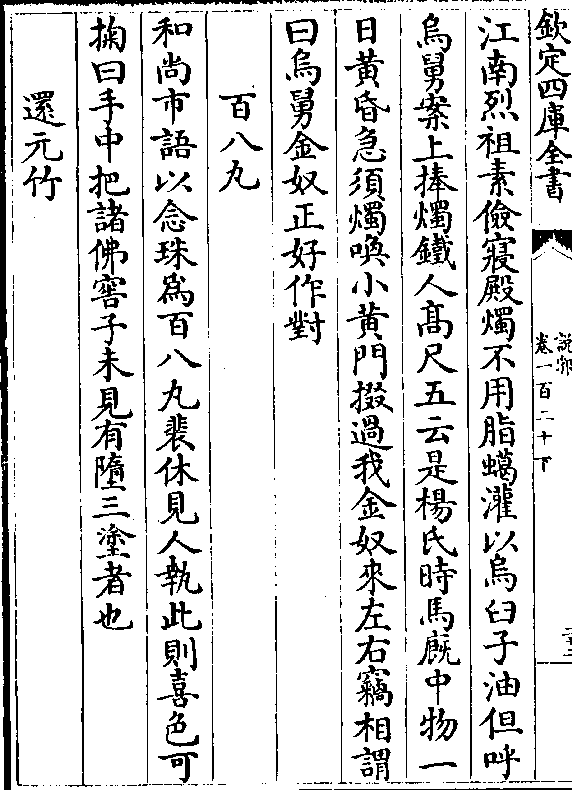 欽定四庫全書
說郛
卷一百二十下
江南烈祖素儉寢殿燭不用脂蠟灌以烏臼子油但呼
烏舅案上捧燭鐵人髙尺五云是楊氏時馬廐中物一
日黄昏急須燭喚小黄門掇過我金奴來左右竊相謂
曰烏舅金奴正好作對
百八丸
和尚市語以念珠為百八丸裴休見人執此則喜色可
掬曰手中把諸佛窖子未見有墮三塗者也
還元竹